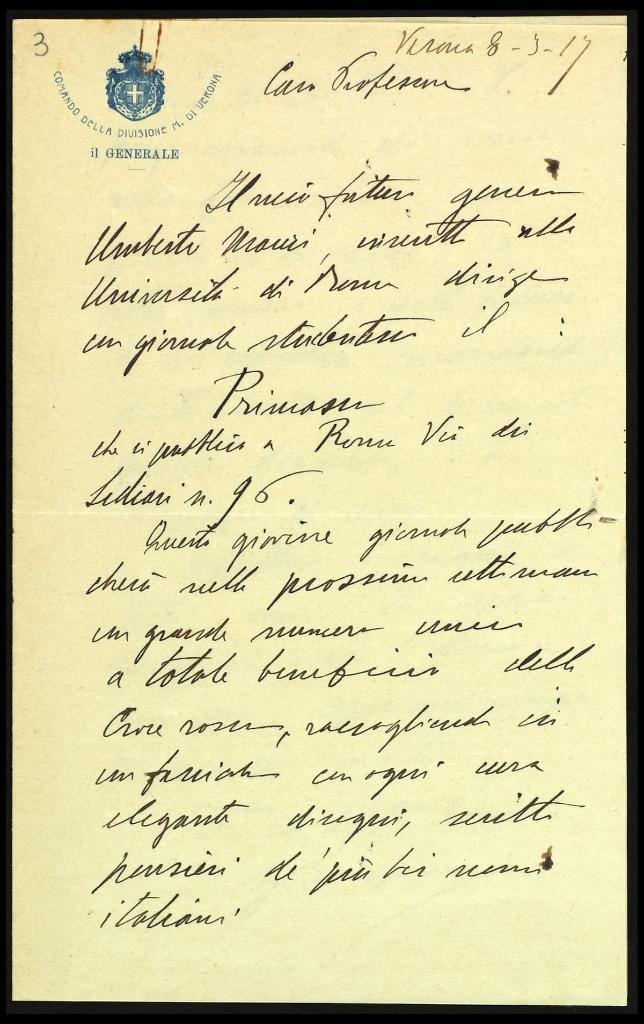 3
Verona 8-3-17
COMANDO DELLA DIVISIONE M. DI VERONA
il GENERALE
Caro Professore
Il mio futuro genero
Umberto Mauri, inscritto alla
Università di Roma dirige
un giornale studentesco il :
Primosa
che si pubblica a Roma Via dei
Sediari n. 96.
Questo giovine giornale pubbli-
cherà nella prossima settimana
un grande numero unico
a totale beneficio della
Croce rossa, raccogliendo in
un fascicolo con ogni cura
elegante disegni, scritti
pensieri de' più bei nomi
italiani